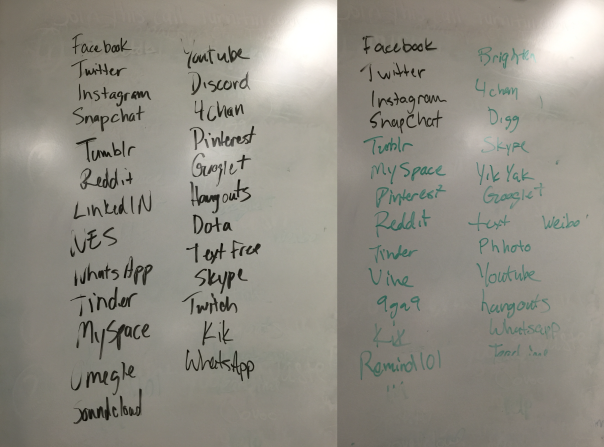 Facebook
Twitter
Instagram
Snapchat
Tumblr
Reddit
LinkedIN
WhatsApp
Tinder
MySpace
Omegle
Soundcloud
Youtube
Discord
4chan
Pinterest
Google+
Hangouts
Dota
Text Free
Skype
Twitch
Kik
WhatsApp
Facebook
Twitter
Instagram
SnapChat
MySpace
Pinterest
Reddit
Tinder
Vine
9ga9
Kik
Remind101
4chan
Digg
Skype
Yik Yak
Google+
text Weibo
Phhoto
Youtube
hangouts